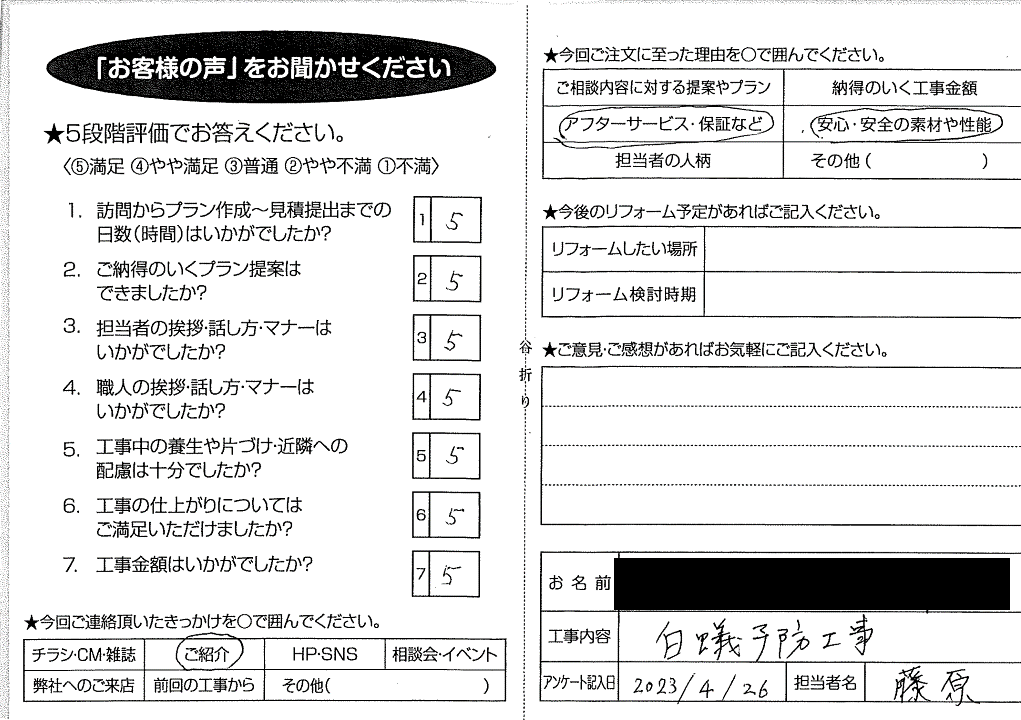 「お客様の声」をお聞かせください
★5段階評価でお答えください。
〈⑤満足 ④やや満足 ③普通 ②やや不満 ①不満〉
1. 訪問からプラン作成～見積提出までの
日数(時間)はいかがでしたか?
1 5
2. ご納得のいくプラン提案は
できましたか?
2 5
3. 担当者の挨拶・話し方・マナーは
いかがでしたか?
3 5
4. 職人の挨拶・話し方・マナーは
いかがでしたか?
4 5
5. 工事中の養生や片づけ・近隣への
配慮は十分でしたか?
5 5
6. 工事の仕上がりについては
ご満足いただけましたか?
6 5
7. 工事金額はいかがでしたか?
7 5
★今回ご連絡頂いたきっかけを〇で囲んでください。
チラシ・CM・雑誌 ご紹介 HP・SNS 相談会・イベント
弊社へのご来店 前回の工事から その他( )
谷折り
★今回ご注文に至った理由を〇で囲んでください。
ご相談内容に対する提案やプラン 納得のいく工事金額
アフターサービス・保証など 安心・安全の素材や性能
担当者の人柄 その他( )
★今後のリフォーム予定があればご記入ください。
リフォームしたい場所
リフォーム検討時期
★ご意見・ご感想があればお気軽にご記入ください。
お名前
工事内容 白蟻予防工事
アンケート記入日 2023/4/26 担当者名 藤原